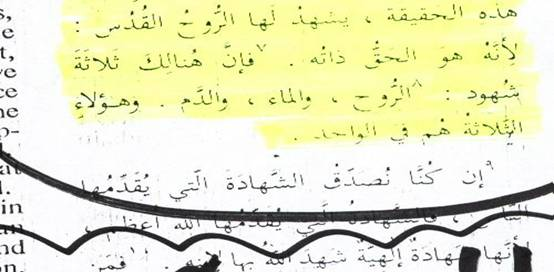 هذه الحقيقة ، يشهدُ لَها الرُّوحُ القُدُس :
لأَنَّهُ هوَ الحَقُّ ذاتُه . ٧ فإنَّ هُنالِكَ ثَلاثَةَ
شهُود : ٨ الرُّوح ، والماء ، والدَّم . وهـؤلاءِ
الثَّلاثةُ هُم في الواحِد .
٩ إن كُنَّا نُصَدِّقُ الشَّهادَةَ الَّتي يُقَدِّمُها
النَّاس ، فالشَّهادةُ الَّتي يُقَدِّمُها الله أعظم ،
لأنَّها شهادَةٌ إلهيَّةٌ شَهِدَ اللهُ بها لابنِه . ١٠ فمَن
ce
in
nd
on.